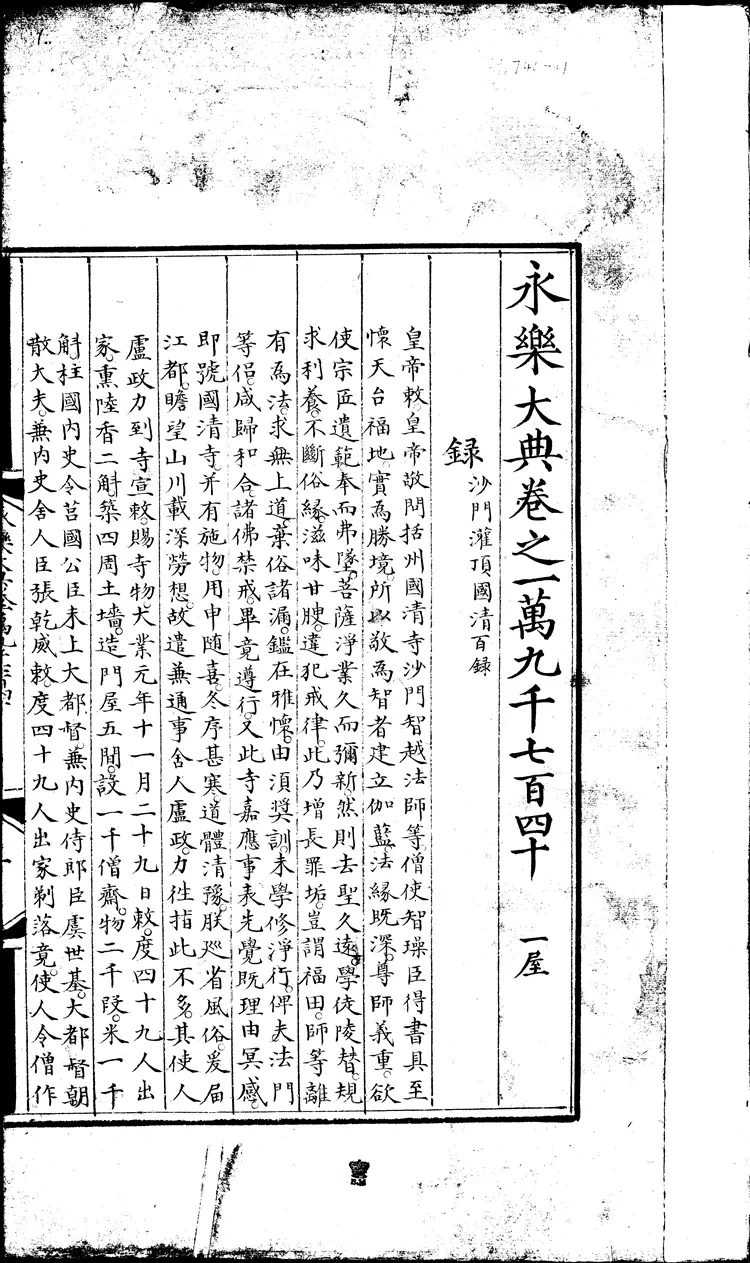 永樂大典卷之一萬九千七百四十 一屋
録 沙門灌頂國清百録
皇帝敕。皇帝敬問括州國清寺沙門智越法師等。僧使智璪臣得書具至
懷。天台福地。實為勝境。所以敬為智者建立伽藍。法緣既深。尊師義重。欲
使宗匠遺範奉而弗墜。菩薩淨業久而彌新。然則去聖久遠。學徒陵替。規
求利養。不斷俗緣。滋味甘腴。違犯戒律。此乃增長罪垢。豈謂福田。師等離
有為法。求無上道。葉俗諸漏。鑑在雅懷。由須奨訓。未學修淨行。俾夫法門
等侣。咸歸和合。諸佛禁戒。畢竟遵行。又此寺嘉應事表先覺。既理由冥感。
即號國清寺。并有施物。用申随喜。冬序甚寒。道體清豫。朕廵省風俗。爰届
江都。瞻望山川。載深勞想。故遣兼通事舍人盧政。力往指此不多。其使人
盧政力到寺宣敕。賜寺物。大業元年十一月二十九日敕。度四十九人出
家。熏陸香二斛。築四周土墻。造門屋五間。設一千僧齋。物二千段。米一千
斛。柱國内史令莒國公臣未上大都督。兼内史侍郎臣虞世基。大都督朝
散大夫。兼内史舍人臣張乾威敕。度四十九人出家剃落竟。使人令僧作